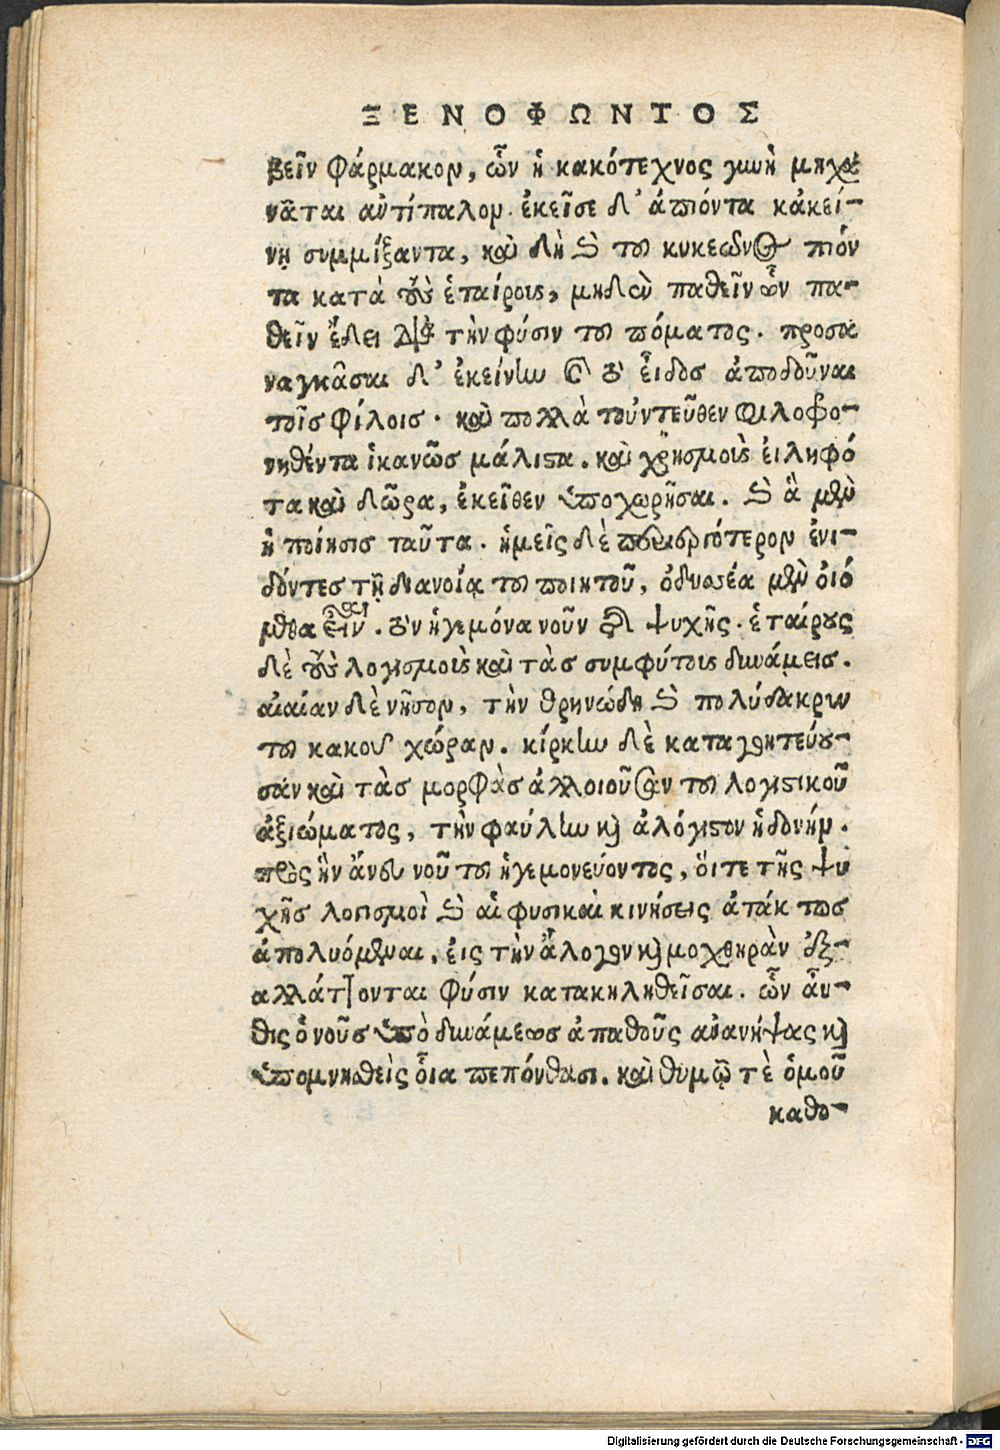 ΞΕΝΟΦΩΝΤΟΣ
βεῖν φάρμακον, ὧν ἡ κακότεχνος γυνὴ μηχα
νᾶται ἀντίπαλον. ἐκεῖσε δ' ἀπιόντα κἀκεί-
νῃ συμμίξαντα, καὶ δὴ καὶ τοῦ κυκεῶνος πιόν
τα κατὰ τοὺς ἑταίρους, μηδὲν παθεῖν ὧν πα-
θεῖν ἔδει διὰ τὴν φύσιν τοῦ πόματος. προσα
ναγκᾶσαι δ' ἐκείνην καὶ τὸ εἶδος ἀποδοῦναι
τοῖς φίλοις. καὶ πολλὰ τοὐντεῦθεν φιλοφο-
νηθέντα ἱκανῶς μάλιστα. καὶ χρησμοὺς εἰληφό
τα καὶ δῶρα, ἐκεῖθεν ὑποχωρῆσαι. καὶ ἃ μὲν
ἡ ποίησις ταῦτα. ἡμεῖς δὲ ἐνι-
δόντες τῇ διανοίᾳ τοῦ ποιητοῦ, ὀδυσσέα μὲν οἰό
μεθα εἶναι. τὸν ἡγεμόνα νοῦν τῆς ψυχῆς. ἑταίρους
δὲ τοὺς λογισμοὺς καὶ τὰς συμφύτους δυνάμεις.
αἰαίαν δὲ νῆσον, τὴν θρηνώδη καὶ πολύδακρυν
τοῦ κακοῦ χώραν. κίρκην δὲ καταγοητεύου-
σαν καὶ τὰς μορφὰς ἀλλοιοῦσαν τοῦ λογιστικοῦ
ἀξιώματος, τὴν φαύλην καὶ ἀλόγιστον ἡδονήν.
πρὸς ἣν ἄνευ νοῦ τοῦ ἡγεμονεύοντος, οἵ τε τῆς ψυ
χῆς λογισμοὶ καὶ αἱ φυσικαὶ κινήσεις ἀτάκτως
ἀπολυόμεναι, εἰς τὴν ἄλογον καὶ μοχθηρὰν ἐξ-
αλλάττονται φύσιν κατακηληθεῖσαι. ὧν αὖ-
θις ὁ νοῦς ὑπὸ δυνάμεως ἀπαθοῦς ἀνανήψας καὶ
ὑπομνησθεὶς οἷα πεπόνθασι. καὶ θυμῷ τὲ ὁμοῦ
καθο-
Digitalisierung gefördert durch die Deutsche Forschungsgemeinschaft - DFG